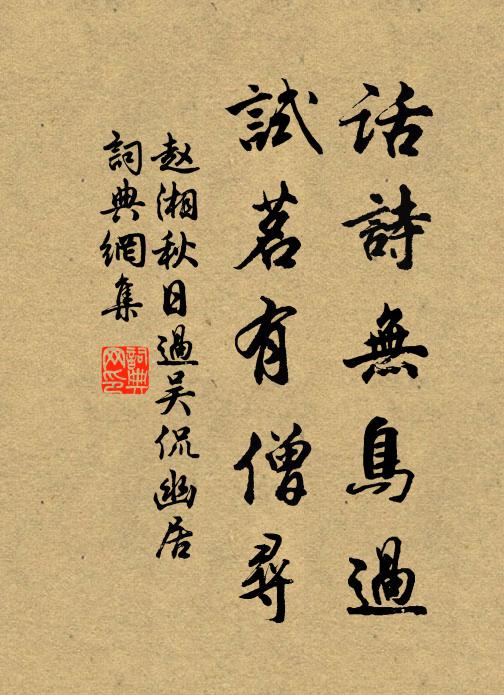 话詩無鳥過
試茗有僧尋
赵湘秋日過吴侃幽居
詞典網集
詞典网印